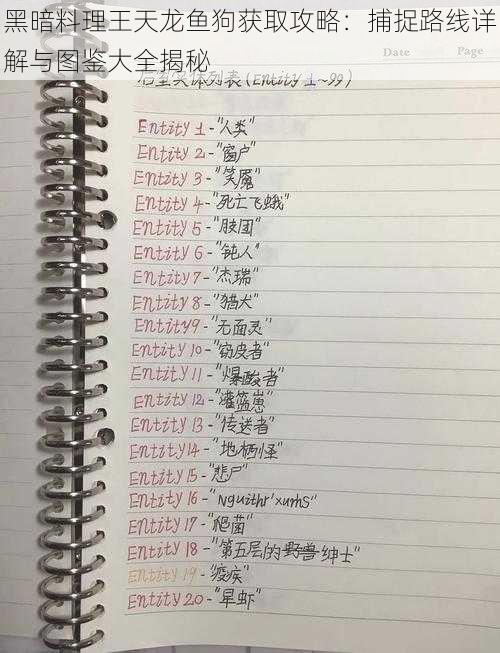 黑暗料理王天龙鱼狗获取攻略：捕捉路线详
解与图鉴大全揭秘
后室实体列表(Entity 1~99)
Date Page
Entity 1-"人类"
Entity 2-"窗户"
Entity 3-"笑魇"
Entity 4-"死亡飞蛾"
Entity 5-"肢团"
Entity 6-"钝人"
Entity 7-"杰瑞"
Entity 8-"猎犬"
Entity 9-"无面灵"
Entity 10-"窃皮者"
Entity 11-"爆酸者"
Entity 12-"灌篮崽"
Entity 13-"传送者"
Entity 14-"地栖怪"
Entity 15-"悲尸"
Entity 16-"Nguithr'xurhs"
Entity 17-"爬菌"
Entity 18-"第五层的野兽绅士"
Entity 19-"疫疾"
Entity 20-"旱虾"